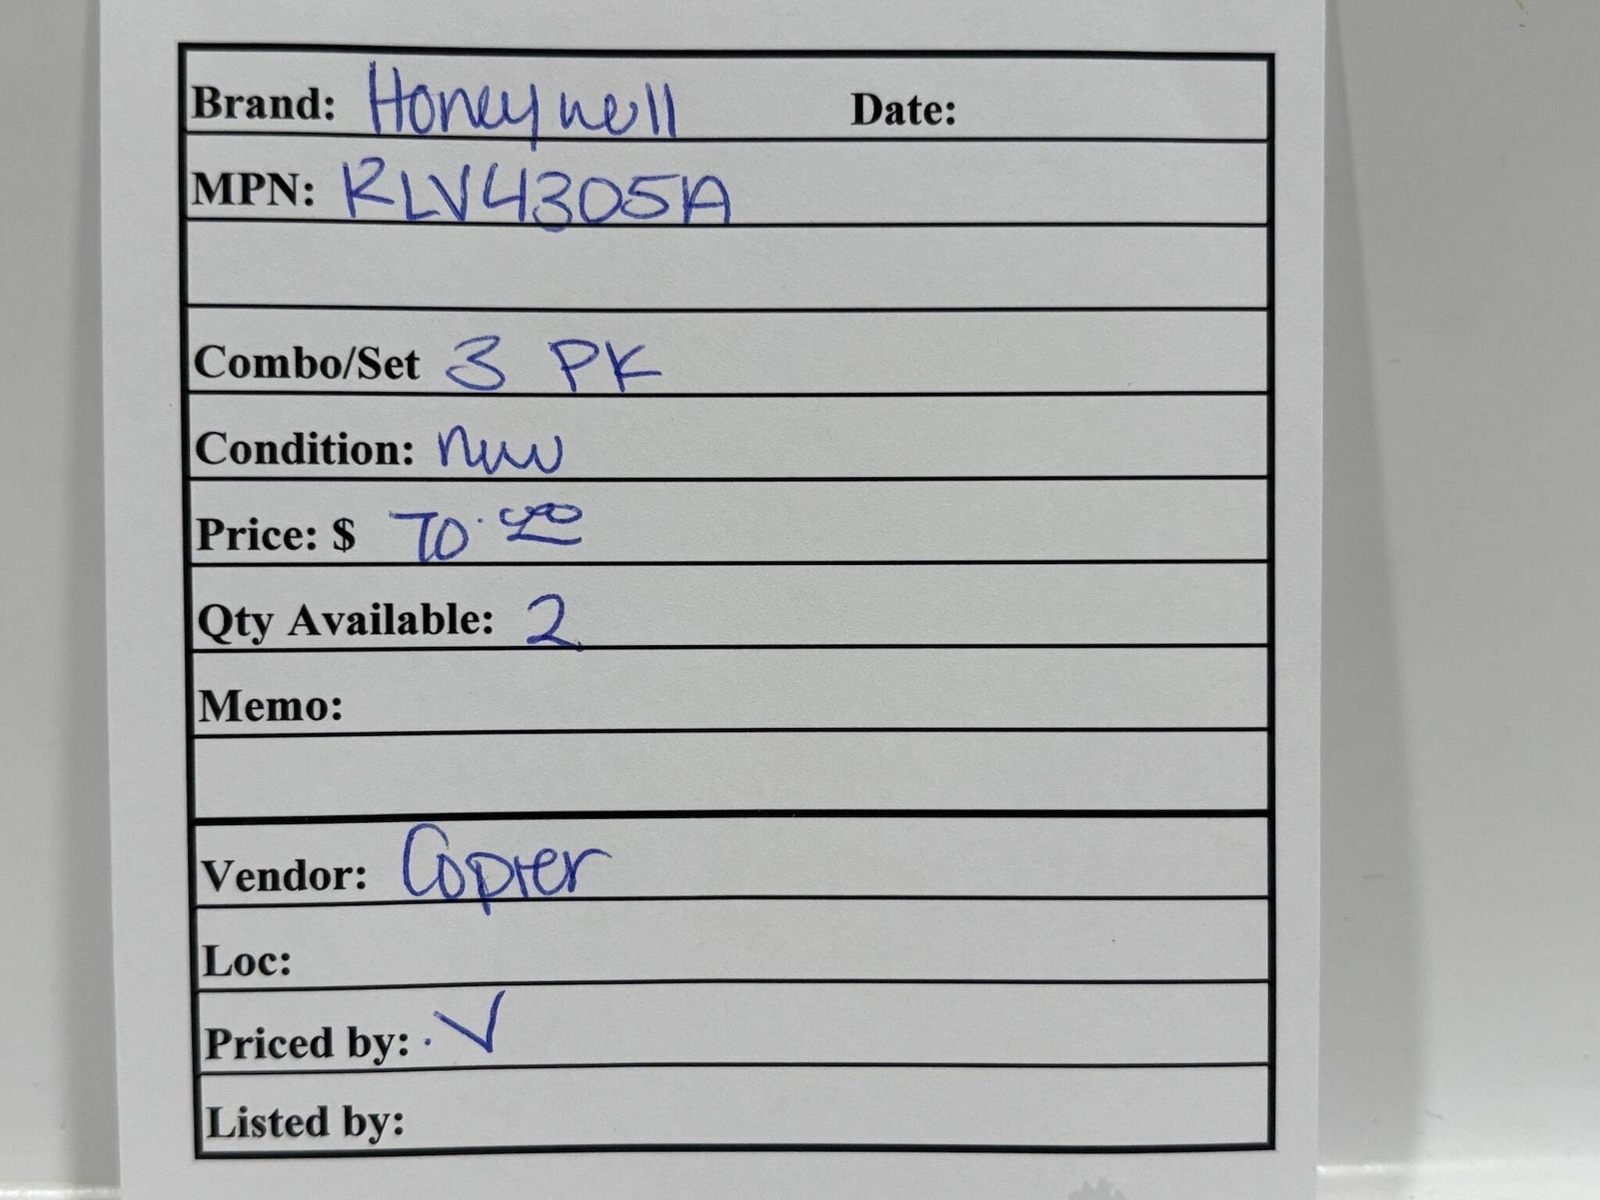 Brand: Honeywell Date:
MPN: RLV4305A
Combo/Set 3 PK
Condition: new
Price: $ 70.00
Qty Available: 2
Memo:
Vendor: Copier
Loc:
Priced by: V
Listed by: